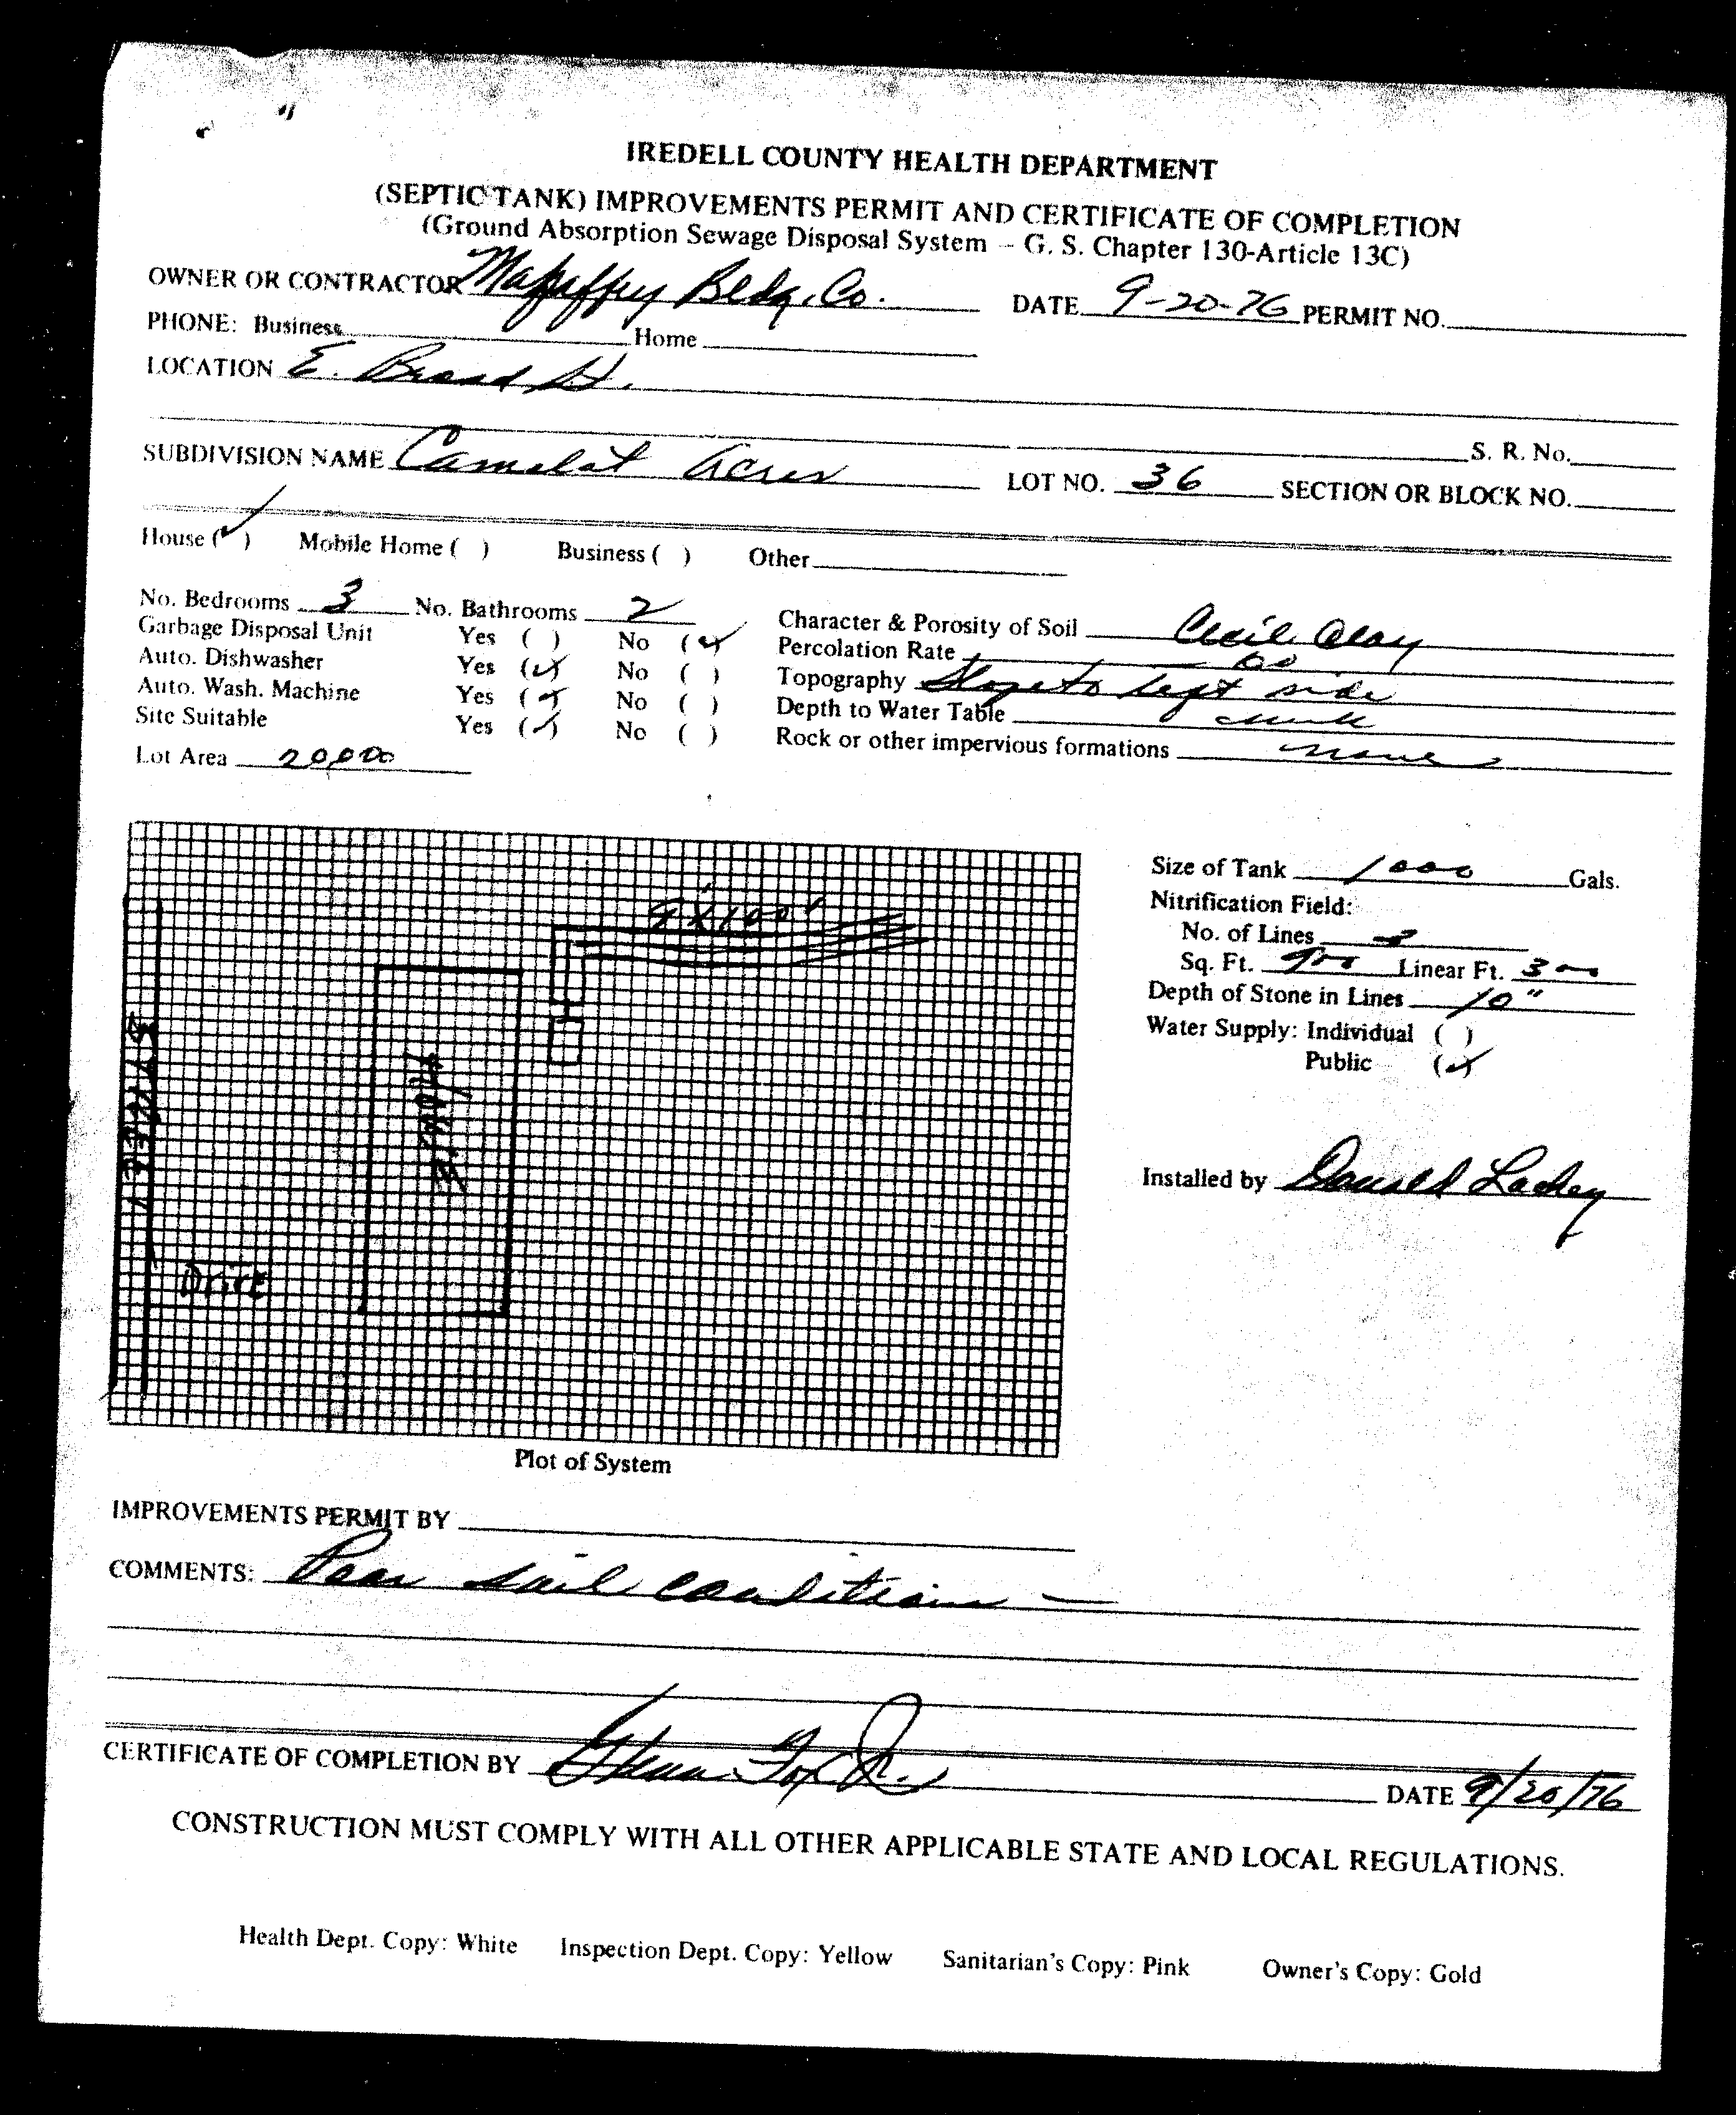 IREDELL COUNTY HEALTH DEPARTMENT
(SEPTIC TANK) IMPROVEMENTS PERMIT AND CERTIFICATE OF COMPLETION
(Ground Absorption Sewage Disposal System – G. S. Chapter 130-Article 13C)
OWNER OR CONTRACTOR Bldg. Co. DATE 9-20-76 PERMIT NO.
PHONE: Business Home
LOCATION E. Broad St.
S. R. No.
SUBDIVISION NAME Camelot Acres LOT NO. 36 SECTION OR BLOCK NO.
House (✓) Mobile Home ( ) Business ( ) Other
No. Bedrooms 3 No. Bathrooms 2 Character & Porosity of Soil Cecil Clay
Garbage Disposal Unit Yes ( ) No (✓) Percolation Rate 60
Auto. Dishwasher Yes (✓) No ( ) Topography Slope to left side
Auto. Wash. Machine Yes (✓) No ( ) Depth to Water Table
Site Suitable Yes (✓) No ( ) Rock or other impervious formations none
Lot Area 20,000
Size of Tank 1000 Gals.
Nitrification Field:
No. of Lines 3
Sq. Ft. 900 Linear Ft. 300
Depth of Stone in Lines 10"
Water Supply: Individual ( )
Public (✓)
Installed by Donald Lackey
X100'
STREET
HOUSE
Drive
Plot of System
IMPROVEMENTS PERMIT BY
COMMENTS: Poor soil conditions —
CERTIFICATE OF COMPLETION BY Jr. DATE 9/20/76
CONSTRUCTION MUST COMPLY WITH ALL OTHER APPLICABLE STATE AND LOCAL REGULATIONS.
Health Dept. Copy: White Inspection Dept. Copy: Yellow Sanitarian's Copy: Pink Owner's Copy: Gold